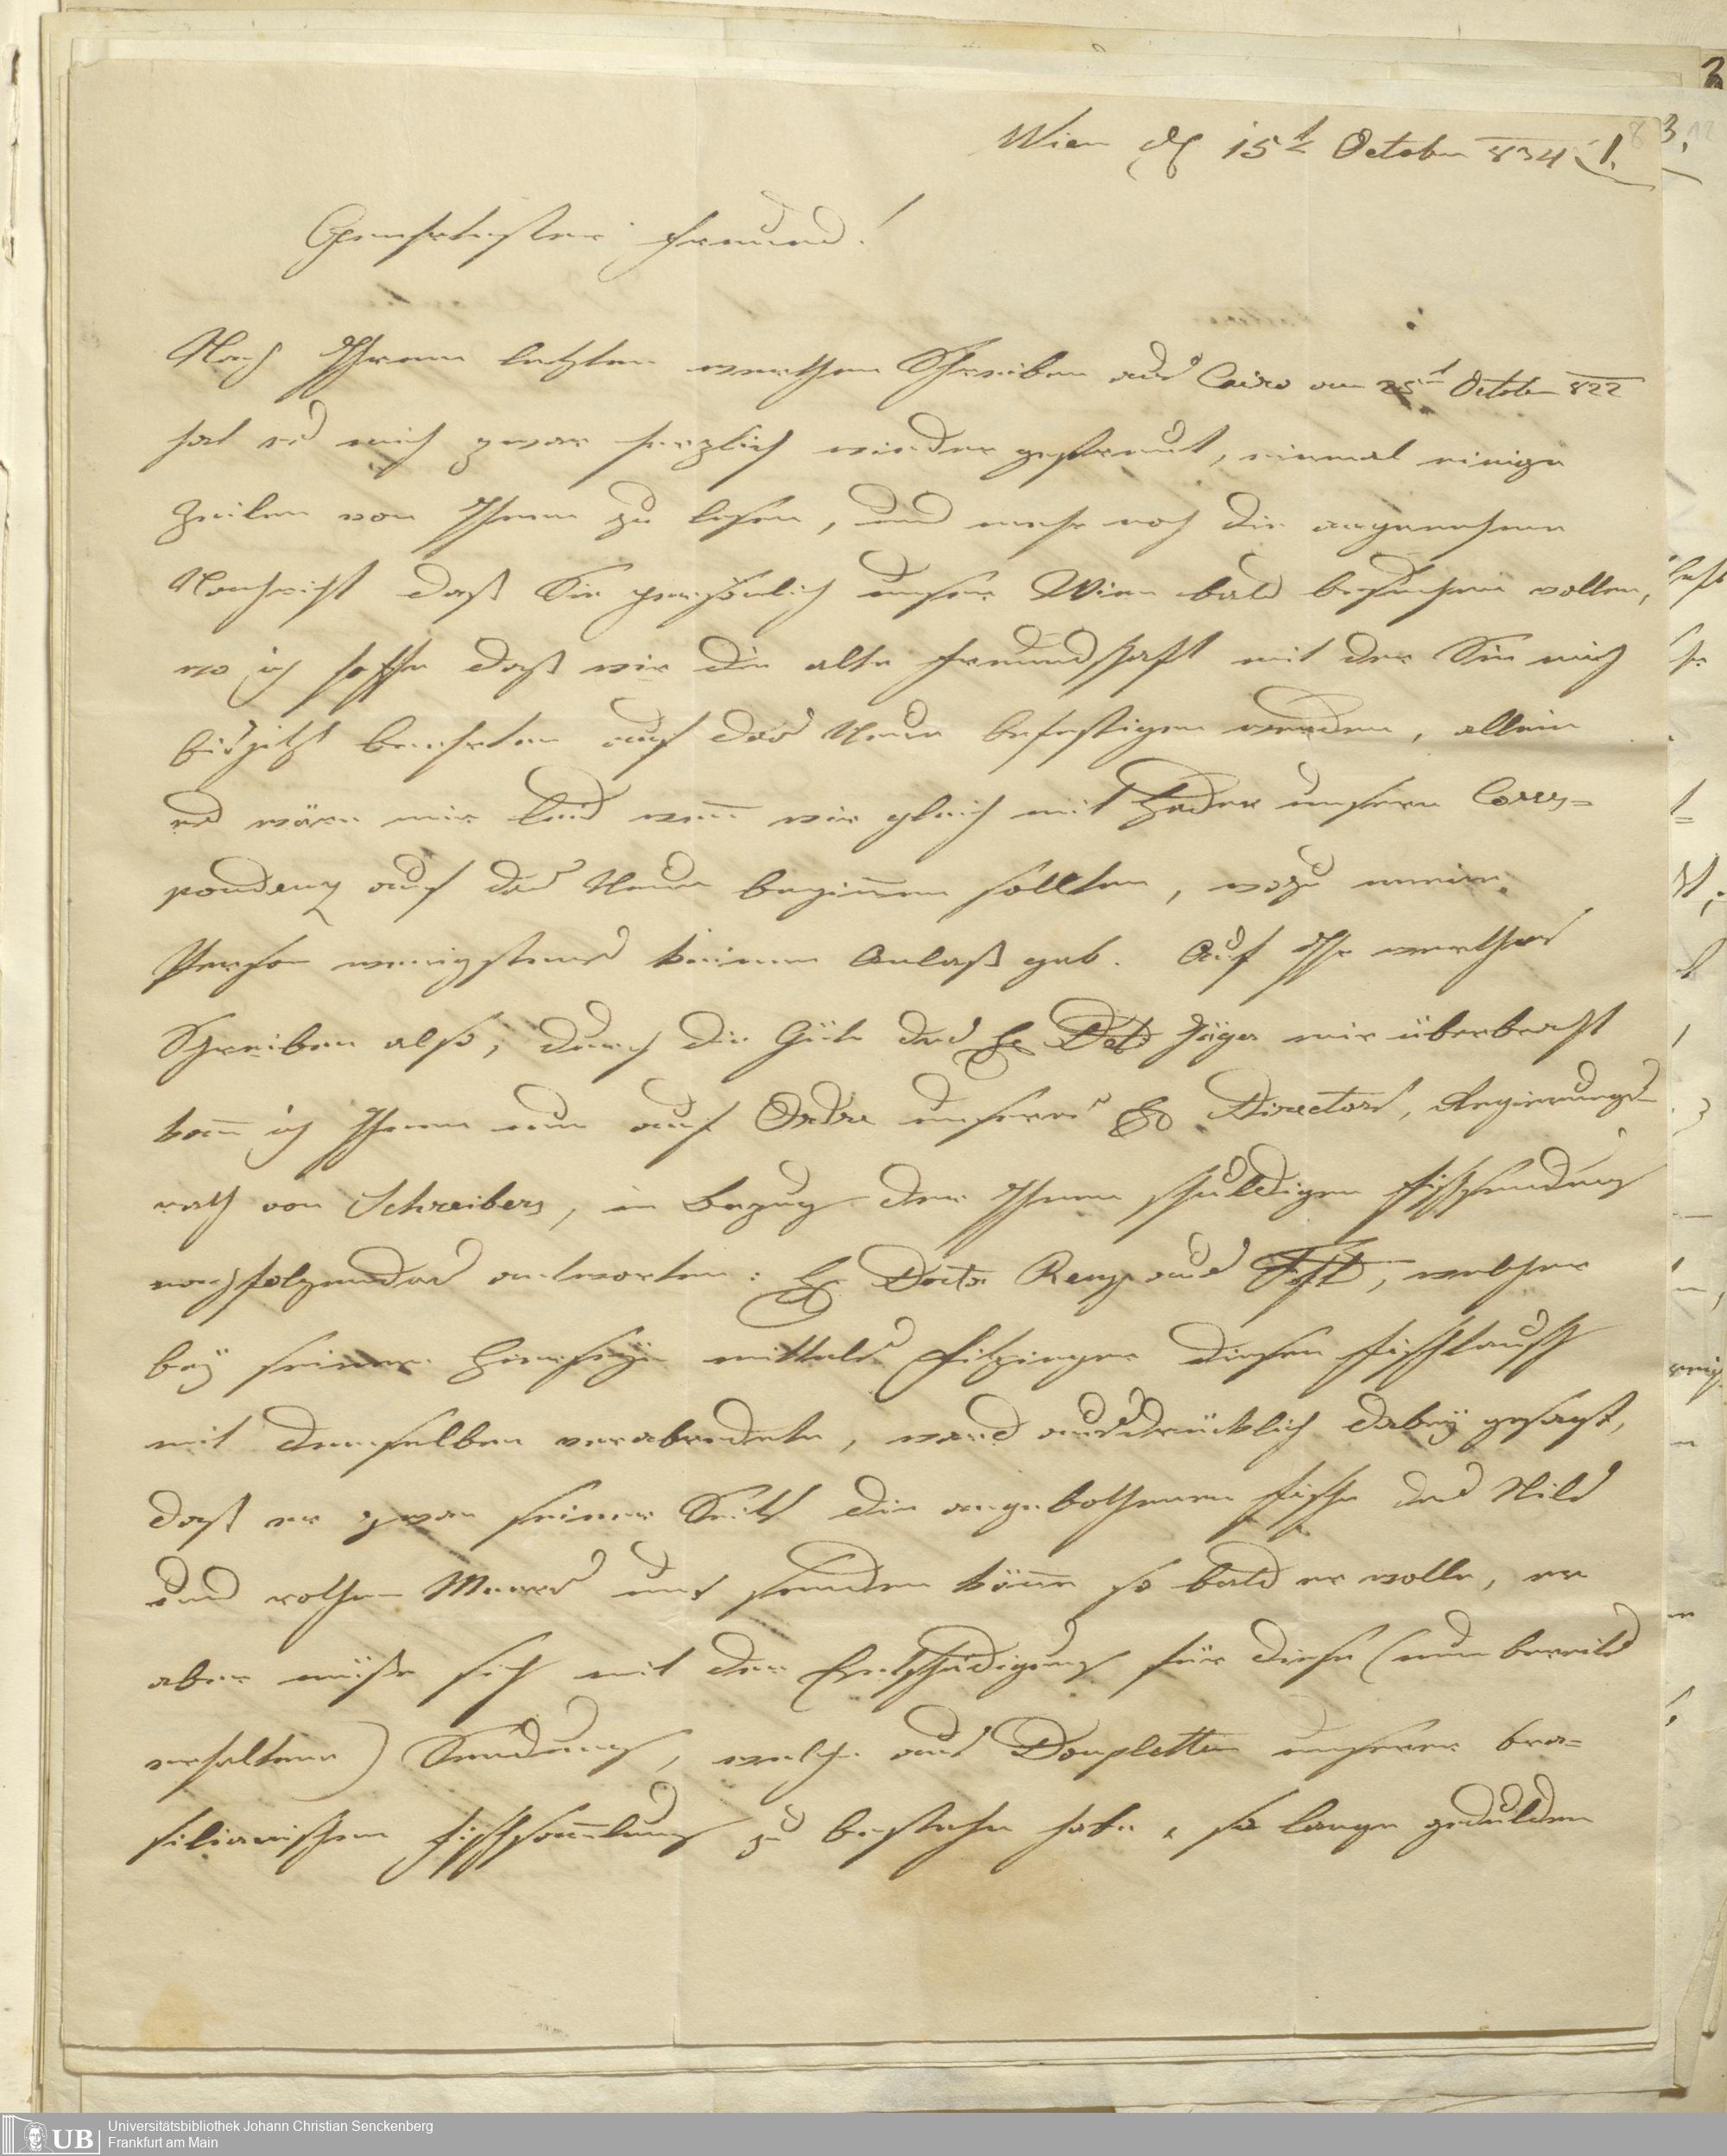 Wien d 15t October 834 1.
Geehrtester Freund!
Nach Ihrem letzten werthen Schreiben aus Cairo am 25t October 822
hat es mich zwar herzlich wieder gefreut, einmal einige
Zeilen von Ihnen zu lesen, und mehr noch die angenehme
Nachricht daß Sie persönlich unser Wien bald besuchen wollen,
wo ich hoffe daß wir die alte Freundschaft mit der Sie mich
bisjetzt beehrten auf das Neue befestigen werden, allein
es wäre mir leid wenn wir gleich mit Hader unsern Corres=
pondenz auf das Neue beginnen sollten, wozu meine
Person wenigstens keinen Anlaß gab. Auf Ihr werthes
Schreiben also, durch die Güte des H Jäger mir überbracht
kann ich Ihnen nun auf Ordre unseres H Directors, Regierungs=
rath von Schreibers, in Bezug der Ihnen schuldigen Fischsendung
nachfolgendes antworten: H Doctor, welcher
bey seiner Hierseyn mittels Fitzinger diesen Fischtausch
mit demselben verabredete, ward ausdrücklich dabey gesagt,
daß er zwar seiner Seits die angebothenen Fische des Nils
und rothen Meeres uns senden könne so bald er wolle, er
aber müße sich mit der Entschädigung für diese (nun bereits
erhaltene) Sendung, welche aus Doupletten unserer bra=
silianischen Fischsammlung zu bestehen habe, so lange gedulden
Universitätsbibliothek Johann Christian Senckenberg
Frankfurt am Main
UB